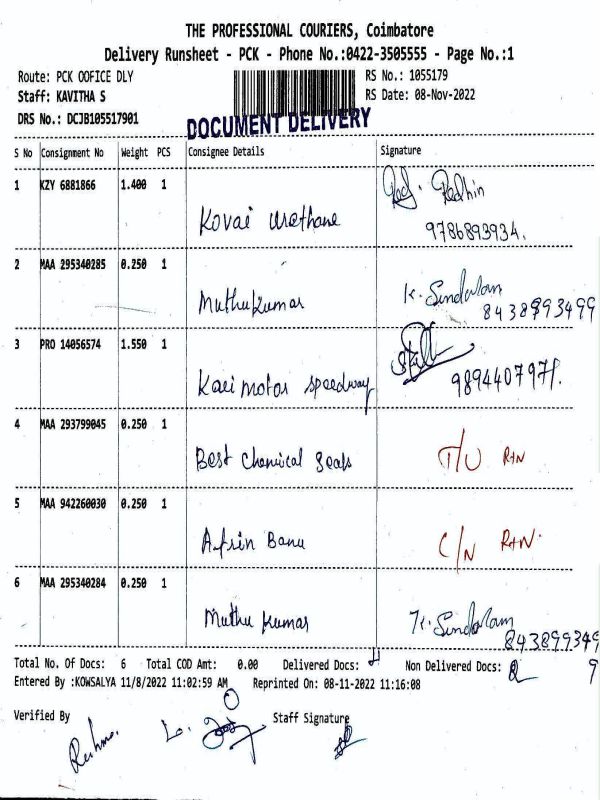 THE PROFESSIONAL COURIERS, Coimbatore
Delivery Runsheet - PCK - Phone No.:0422-3505555 - Page No.:1
Route: PCK OOFICE DLY RS No.: 1055179
Staff: KAVITHA S RS Date: 08-Nov-2022
DRS No.: DCJB105517901
DOCUMENT DELIVERY
S No Consignment No Weight PCS Consignee Details Signature
1 KZY 6881866 1.400 1 Kovai Urethane Radhin
9786893934.
2 MAA 295340285 0.250 1 Muthukumar K. Sundaram
8438993499
3 PRO 14056574 1.550 1 Kari motor speedway
9894407971.
4 MAA 293799045 0.250 1 Best Chemical Seals T/U RTN
5 MAA 942260030 0.250 1 Afrin Banu C/N RTN.
6 MAA 295340284 0.250 1 Muthu kumar K. Sundaram
8438993499
Total No. Of Docs: 6 Total COD Amt: 0.00 Delivered Docs: 4 Non Delivered Docs: 2
Entered By :KOWSALYA 11/8/2022 11:02:59 AM Reprinted On: 08-11-2022 11:16:08
Verified By Staff Signature